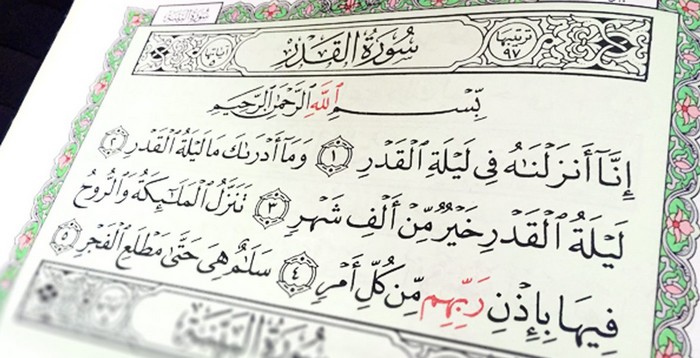 سُورَةُ البَيِّنَة
سُورَةُ القَدْرِ
تَرتيبُها ٩٧
آيَاتُها ٥
بِسْمِ ٱللَّهِ ٱلرَّحْمَٰنِ ٱلرَّحِيمِ
إِنَّآ أَنزَلْنَٰهُ فِى لَيْلَةِ ٱلْقَدْرِ ١ وَمَآ أَدْرَىٰكَ مَا لَيْلَةُ ٱلْقَدْرِ ٢
لَيْلَةُ ٱلْقَدْرِ خَيْرٌ مِّنْ أَلْفِ شَهْرٍ ٣ تَنَزَّلُ ٱلْمَلَٰٓئِكَةُ وَٱلرُّوحُ
فِيهَا بِإِذْنِ رَبِّهِم مِّن كُلِّ أَمْرٍ ٤ سَلَٰمٌ هِىَ حَتَّىٰ مَطْلَعِ ٱلْفَجْرِ ٥
سُورَةُ البَيِّنَة